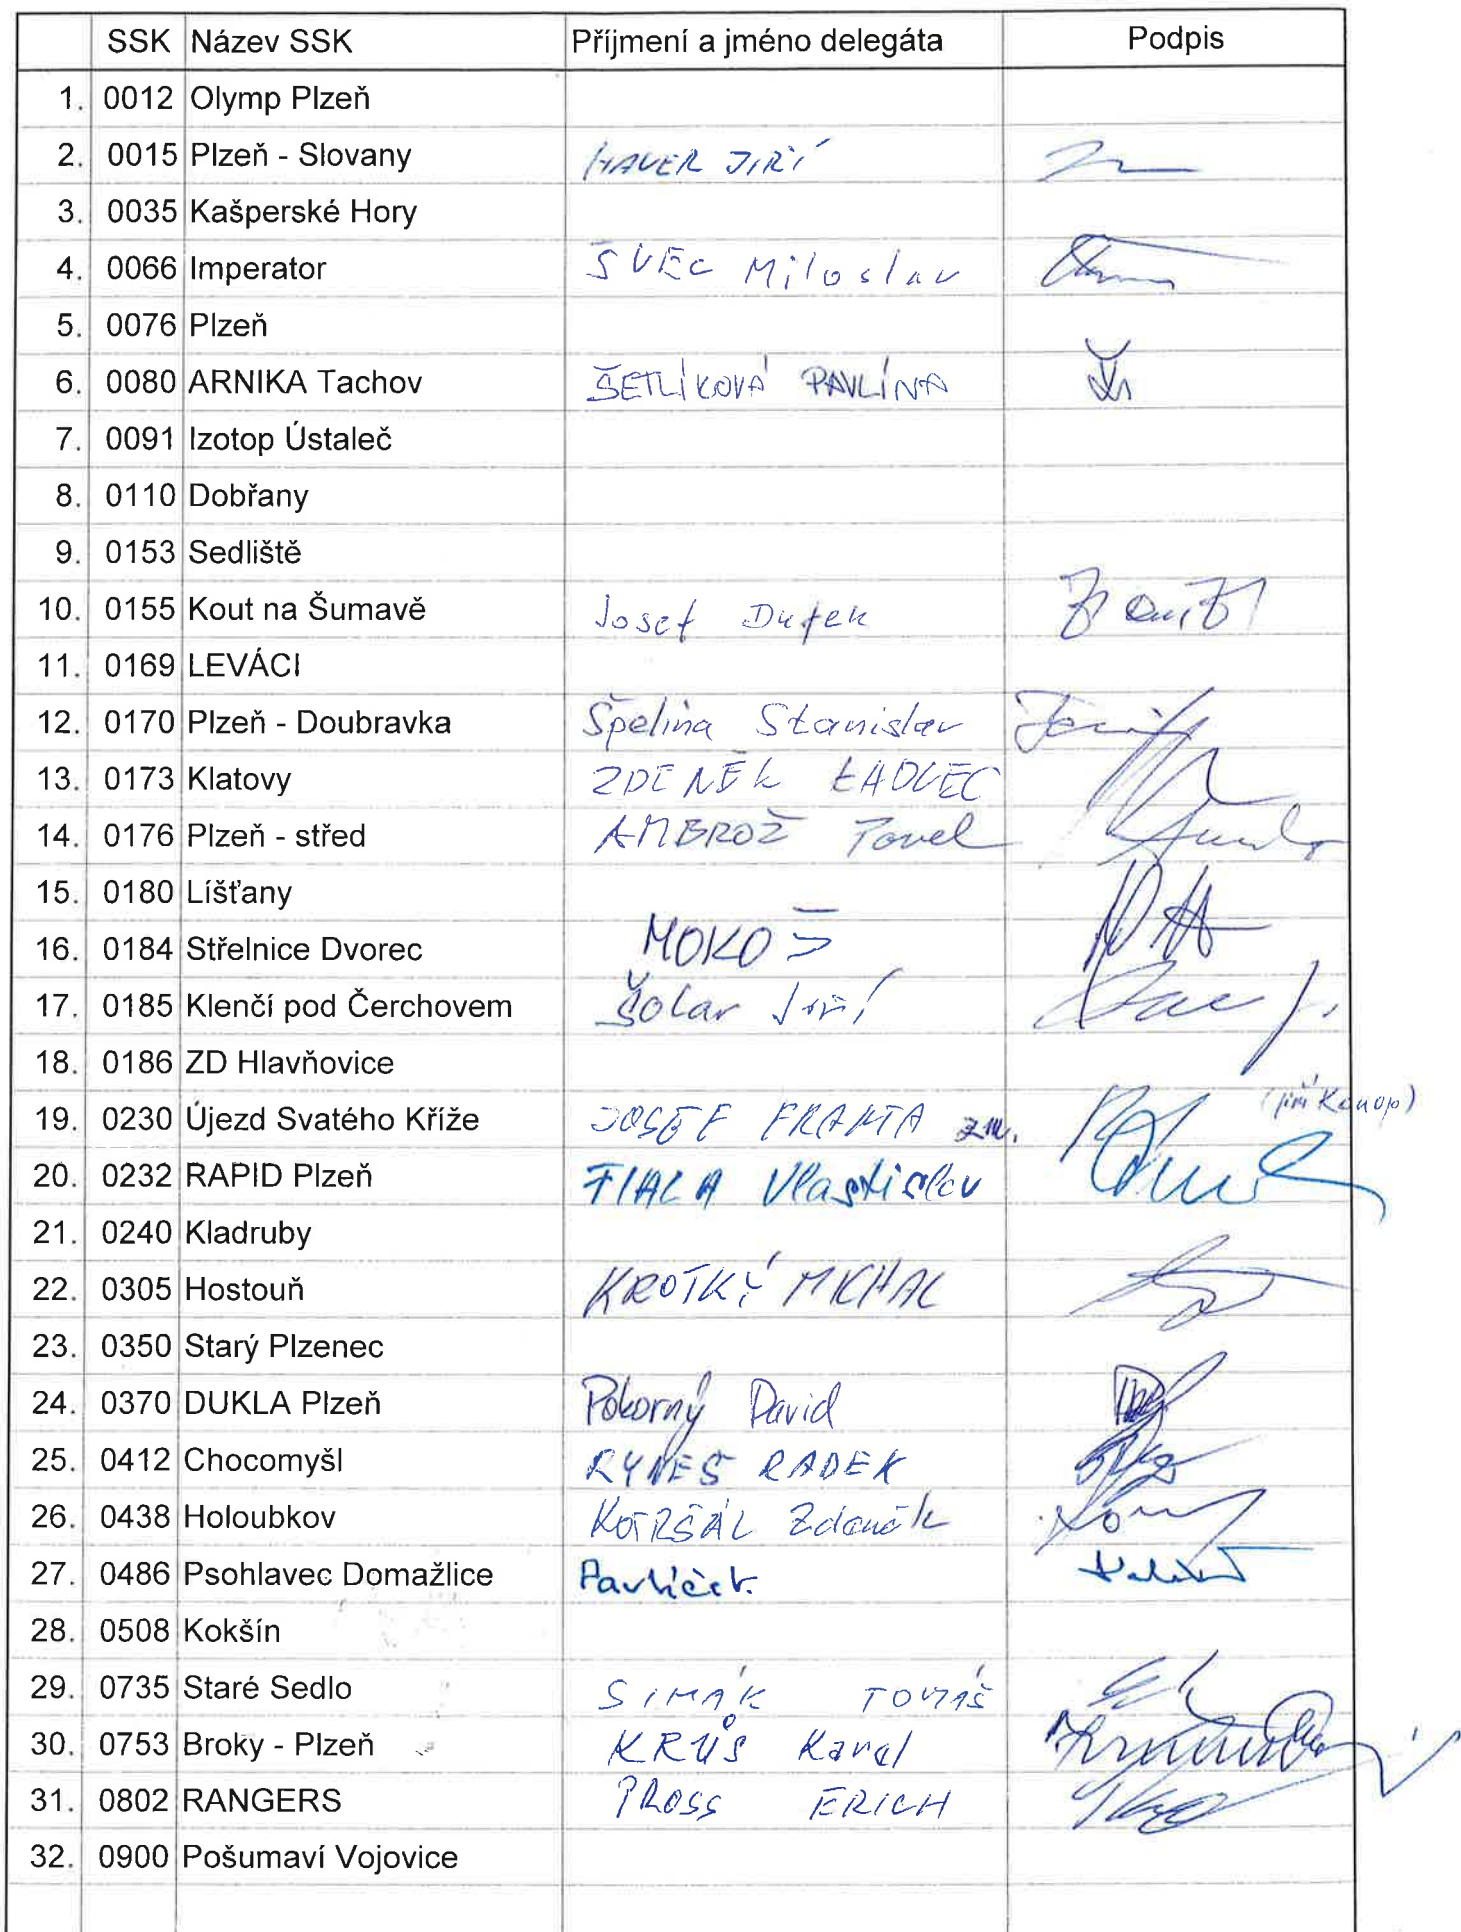 SSK Název SSK Příjmení a jméno delegáta Podpis
1. 0012 Olymp Plzeň
2. 0015 Plzeň - Slovany HAVER JIŘÍ
3. 0035 Kašperské Hory
4. 0066 Imperator ŠVEC Miloslav
5. 0076 Plzeň
6. 0080 ARNIKA Tachov ŠETLÍKOVÁ PAVLÍNA
7. 0091 Izotop Ústaleč
8. 0110 Dobřany
9. 0153 Sedliště
10. 0155 Kout na Šumavě Josef Dufek
11. 0169 LEVÁCI
12. 0170 Plzeň - Doubravka Špelina Stanislav
13. 0173 Klatovy ZDENĚK
14. 0176 Plzeň - střed AMBROŽ Pavel
15. 0180 Líšťany
16. 0184 Střelnice Dvorec MOKOŠ
17. 0185 Klenčí pod Čerchovem Šolar Jiří
18. 0186 ZD Hlavňovice
19. 0230 Újezd Svatého Kříže JOSEF FRANTA zm. (Jiří Konop)
20. 0232 RAPID Plzeň FIALA Vlastislav
21. 0240 Kladruby
22. 0305 Hostouň KROTKÝ MICHAL
23. 0350 Starý Plzenec
24. 0370 DUKLA Plzeň Pokorný David
25. 0412 Chocomyšl RYNEŠ RADEK
26. 0438 Holoubkov KOTRŠÁL Zdeněk
27. 0486 Psohlavec Domažlice Pavlíček
28. 0508 Kokšín
29. 0735 Staré Sedlo SIMÁK TOMÁŠ
30. 0753 Broky - Plzeň KRŮS Karel
31. 0802 RANGERS PROSS ERICH
32. 0900 Pošumaví Vojovice